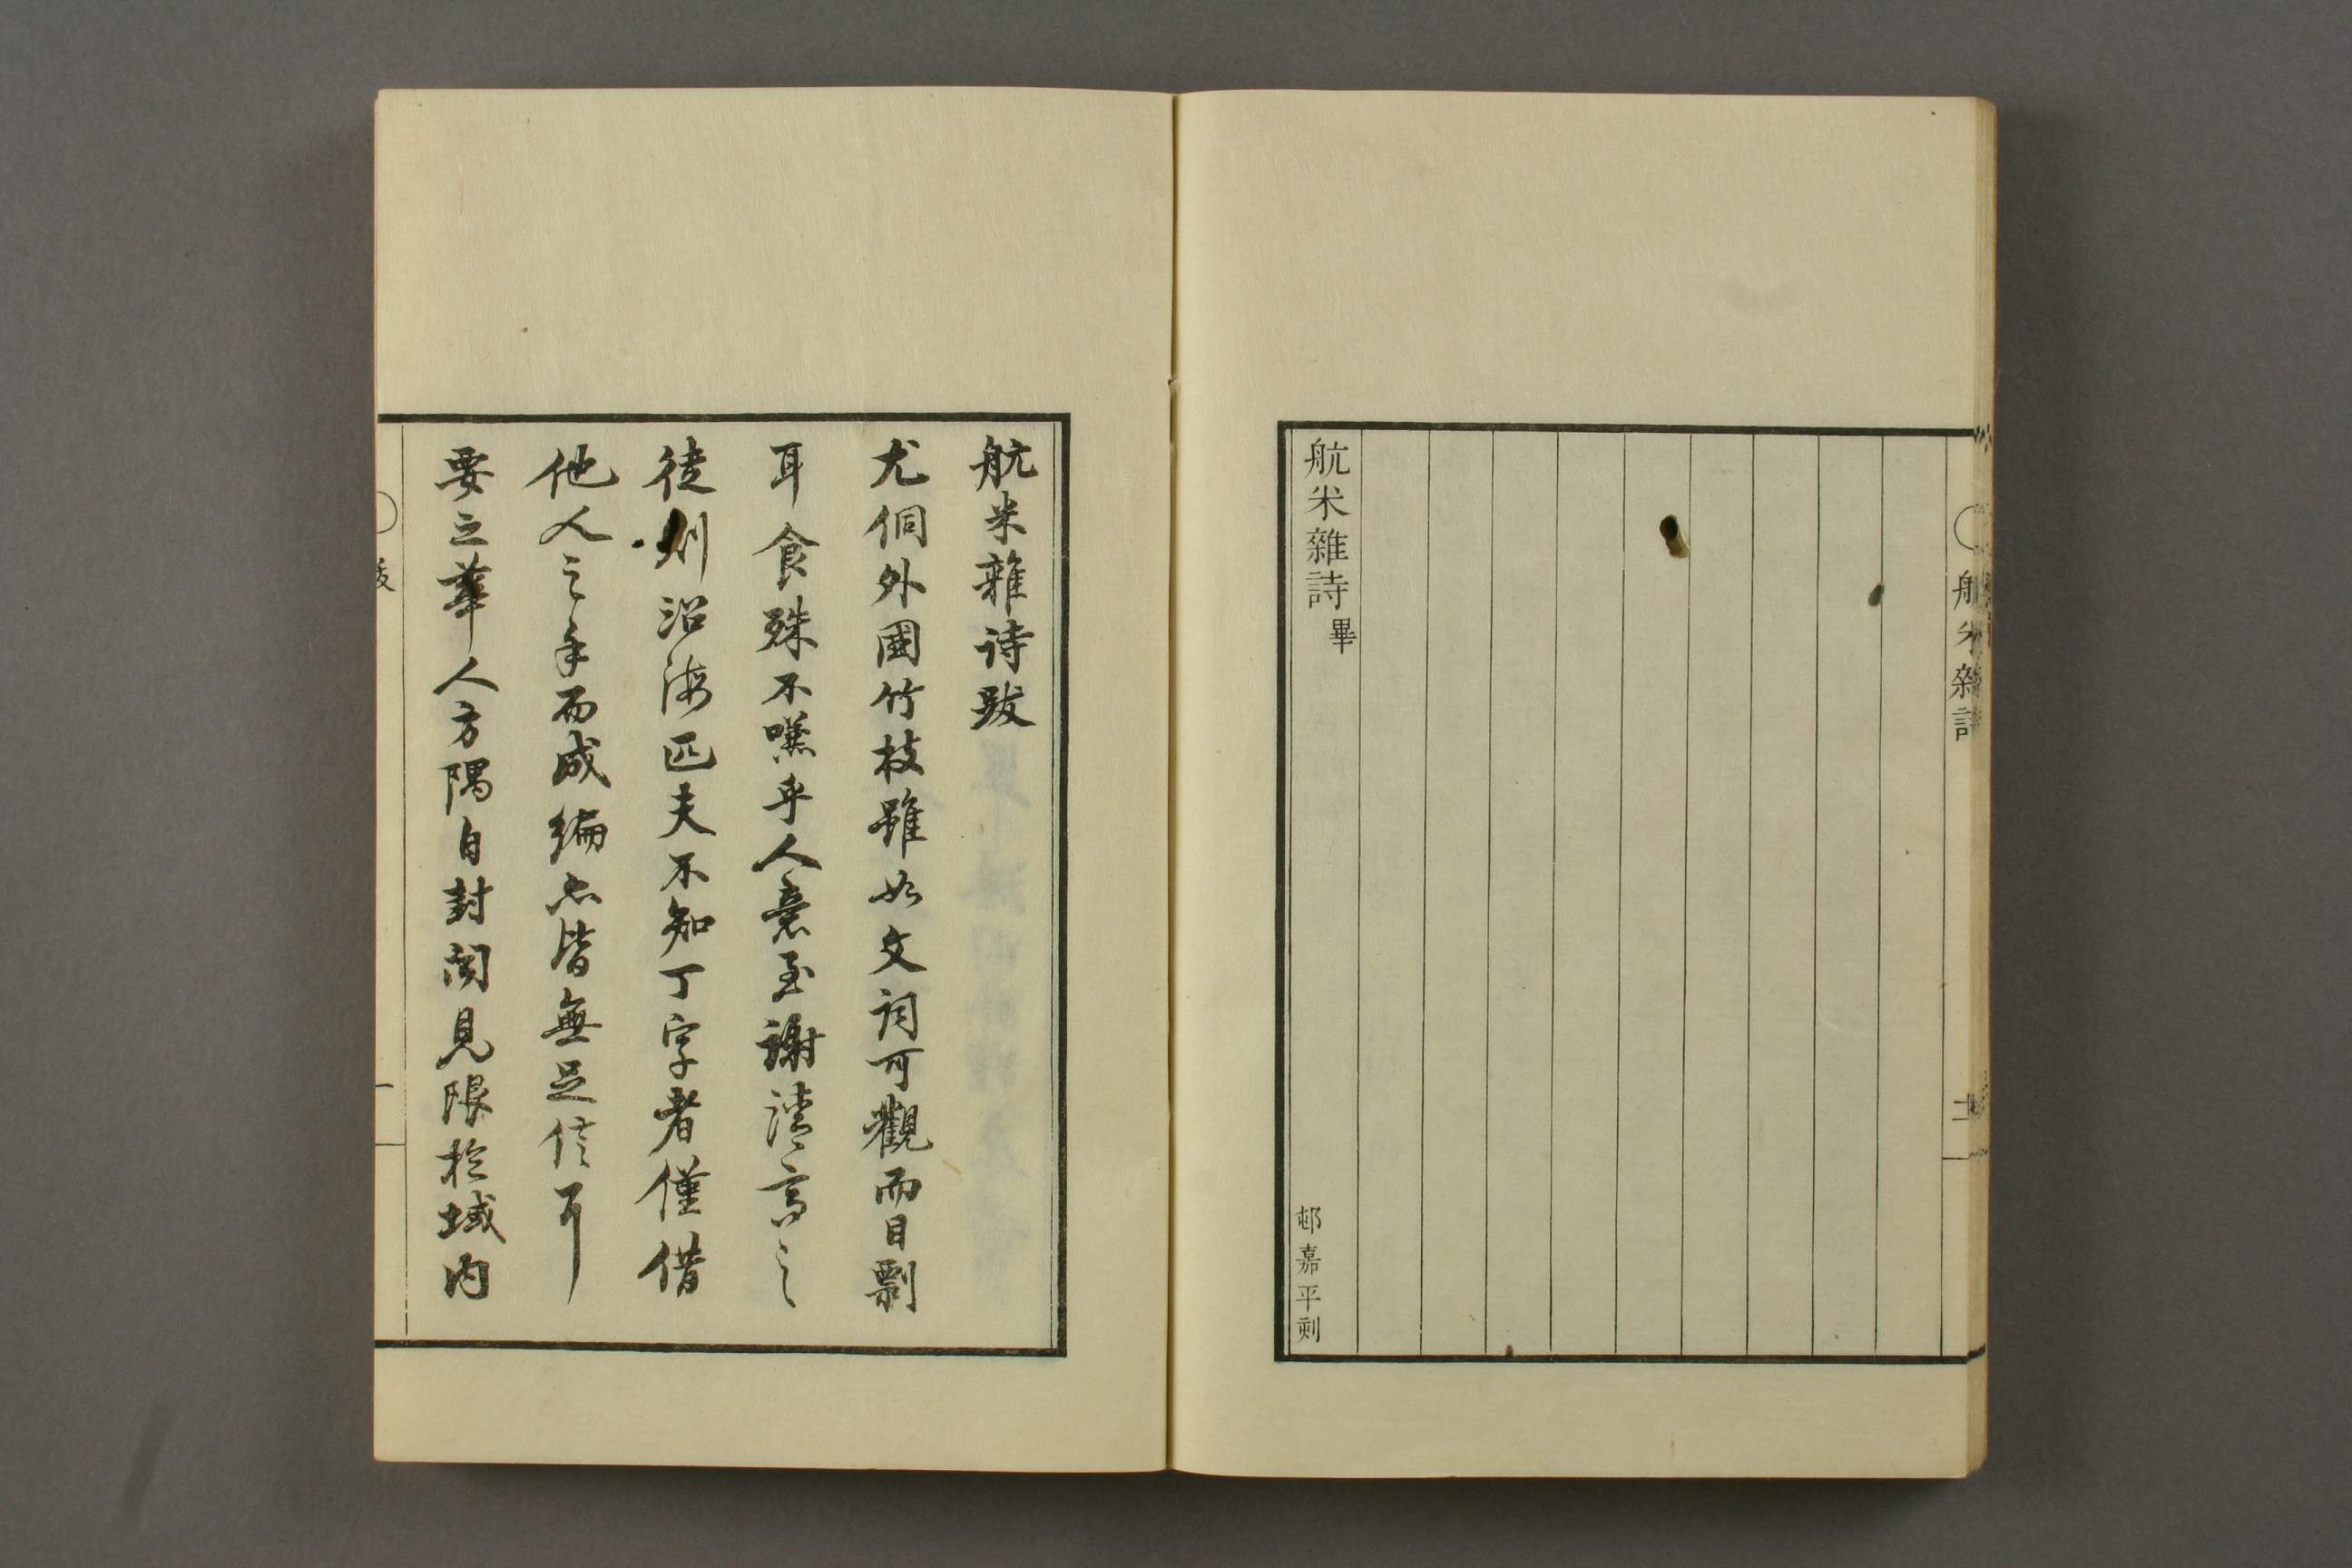 航米雜詩
十一
航米雜詩畢
邨嘉平刻
航米雜詩跋
尤侗外國竹枝雖如文詞可觀而目剽
耳食殊不嗛乎人意至謝淸高之
徒則沿海匹夫不知丁字者僅借
他人之手而成編亦皆無足信耳
要之華人方隅自封聞見限於域內
跋
一